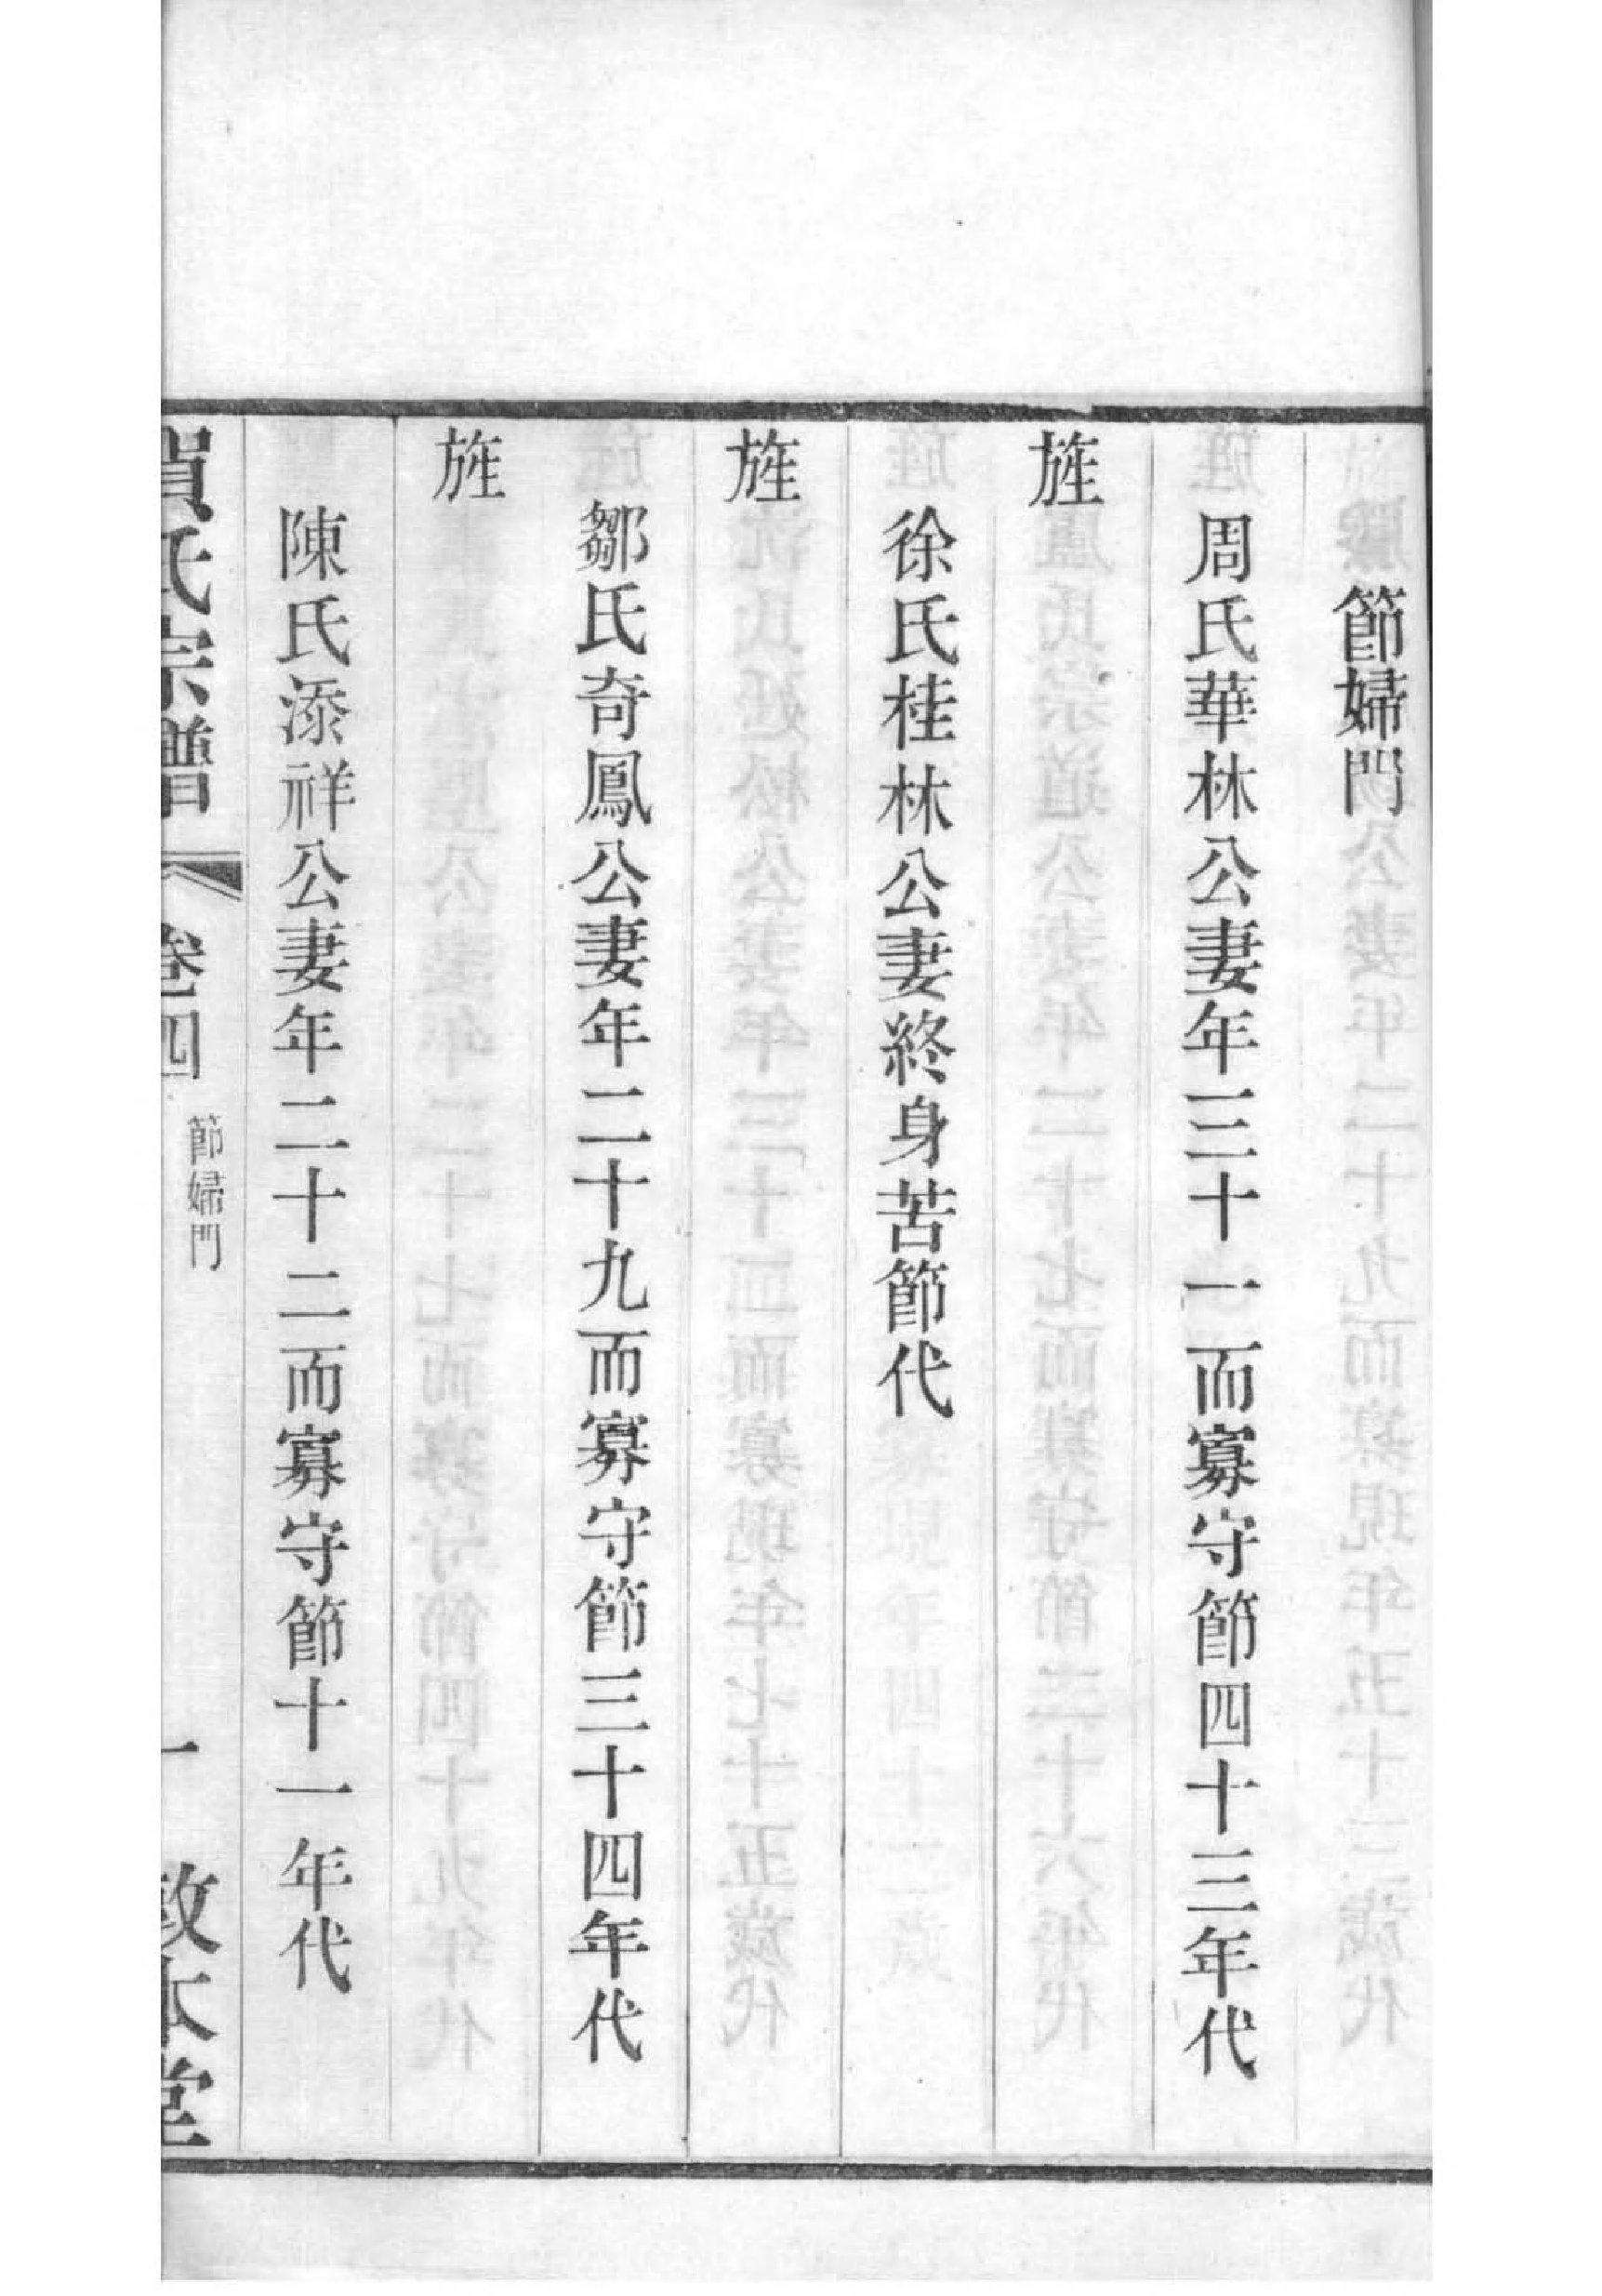 節婦門
周氏華林公妻年三十一而寡守節四十三年代
旌
徐氏桂林公妻終身苦節代
旌
鄒氏奇鳳公妻年二十九而寡守節三十四年代
旌
陳氏添祥公妻年二十二而寡守節十一年代
賀氏宗譜 卷四 節婦門 一 敦本堂